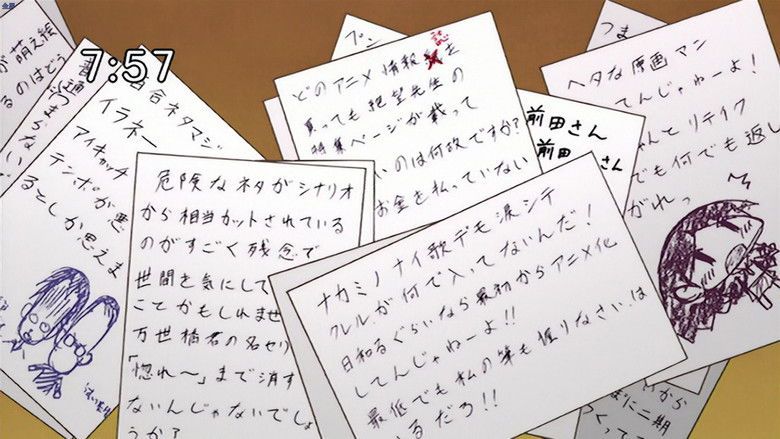 7:57
が萌え絵
るのはどう
つまらない
百合ネタマジ
イラネー
アイキャッチ
テンポが悪
るとしか思えま
危険なネタがシナリオ
から相当カットされている
のがすごく残念で
世間を気にして
ことかもしれませ
万世橋君の名セリ
「惚れ〜」まで消す
ないんじゃないでしょ
うか?
ブン
どのアニメ情報誌を
買っても絶望先生の
特集ページが載って
いのは何故ですか?
お金を払っていない
前田さん
前田さん
ナカミノナイ歌デモ涙シテ
クレルが何で入ってないんだ!
日和るぐらいなら最初からアニメ化
してんじゃねーよ!!
最低でも私の
りなさいは
るだろ!!
つま
ヘタな原画マン
てんじゃねーよ!
ゃんとリテイク
でも何でも返
がれっ
から
まに二期
つくって